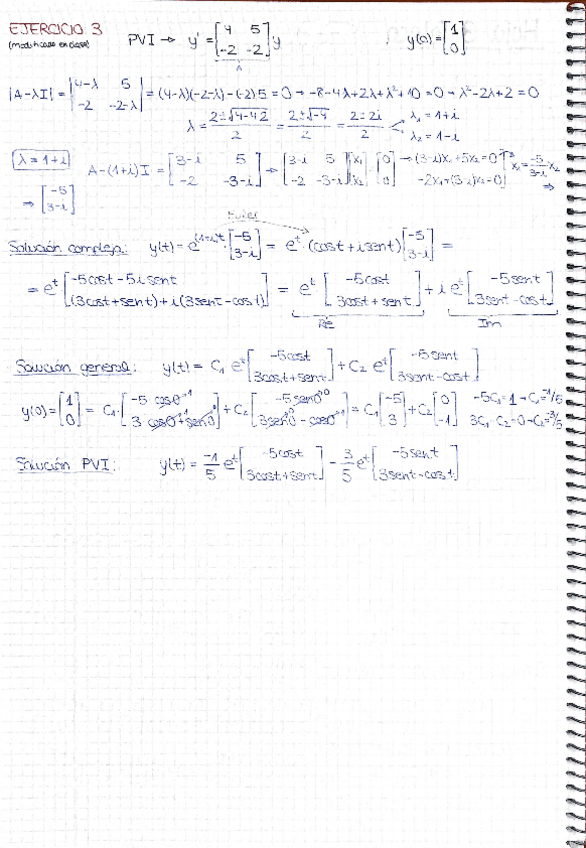 EJERCICIO 3
(modificado en clase) PVI → y' = [4 5; -2 -2] y , y(0) = [1; 0]
A
|A-λI| = |4-λ 5; -2 -2-λ| = (4-λ)(-2-λ)-(-2)5 = 0 → -8-4λ+2λ+λ²+10 = 0 → λ²-2λ+2 = 0
λ = (2±√(4-4·2))/2 = (2±√-4)/2 = (2±2i)/2 λ₁ = 1+i
λ₂ = 1-i
λ = 1+i A-(1+i)I = [3-i 5; -2 -3-i] → [3-i 5; -2 -3-i] [x₁; x₂] [0; 0] → (3-i)x₁+5x₂=0 x₁ = -5/(3-i) x₂
⇒ [-5; 3-i]
Euler
Solución compleja: y(t) = e^(1+i)t · [-5; 3-i] = e^t · (cost+isent) [-5; 3-i] =
= e^t [-5cost-5isent; (3cost+sent)+i(3sent-cost)] = e^t [-5cost; 3cost+sent] + i e^t [-5sent; 3sent-cost]
Re Im
Solución general: y(t) = C₁ e^t [-5cost; 3cost+sent] + C₂ e^t [-5sent; 3sent-cost]
y(0) = [1; 0] = C₁· [-5 cos0; 3 cos0+sen0] + C₂ [-5sen0; 3sen0-cos0] = C₁ [-5; 3] + C₂ [0; -1] -5C₁=1 → C₁=-1/5
3C₁-C₂=0 → C₂=-3/5
Solución PVI: y(t) = -1/5 e^t [-5cost; 3cost+sent] - 3/5 e^t [-5sent; 3sent-cost]